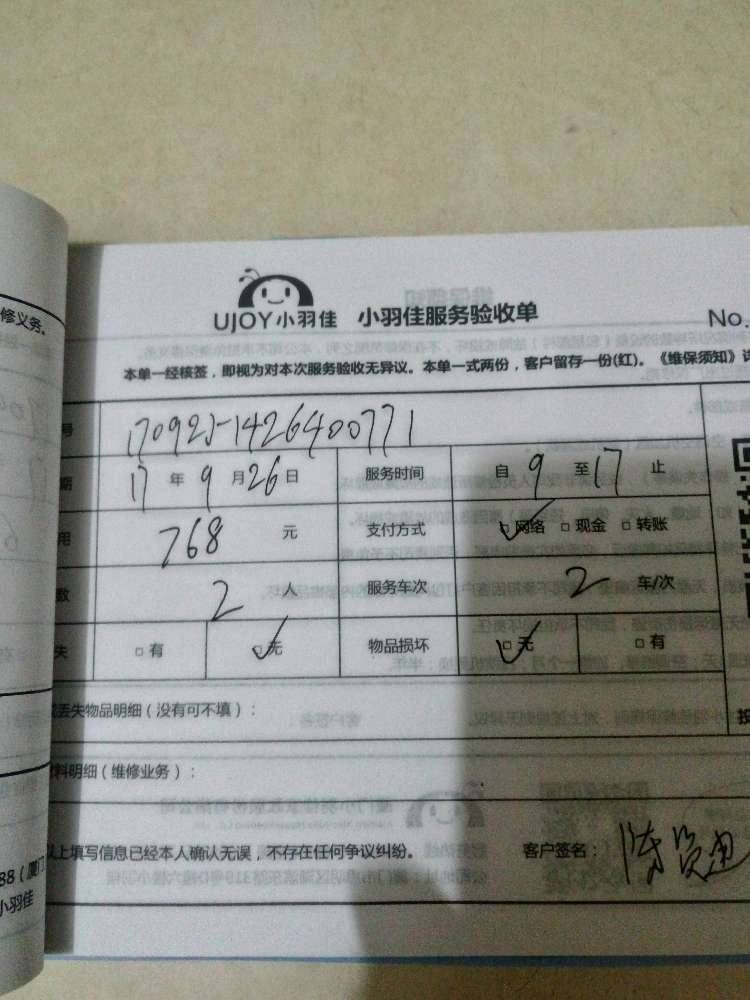 修义务。
UJOY小羽佳 小羽佳服务验收单
No.
本单一经核签，即视为对本次服务验收无异议。本单一式两份，客户留存一份(红)。《维保须知》
号 170925-1426400771
期 17 年 9 月 26 日 服务时间 自 9 至 17 止
用 768 元 支付方式 □网络 □现金 □转账
数 2 人 服务车次 2 车/次
失 □有 □无 物品损坏 □无 □有
丢失物品明细（没有可不填）：
料明细（维修业务）：
以上填写信息已经本人确认无误，不存在任何争议纠纷。 客户签名：
88（厦门
小羽佳